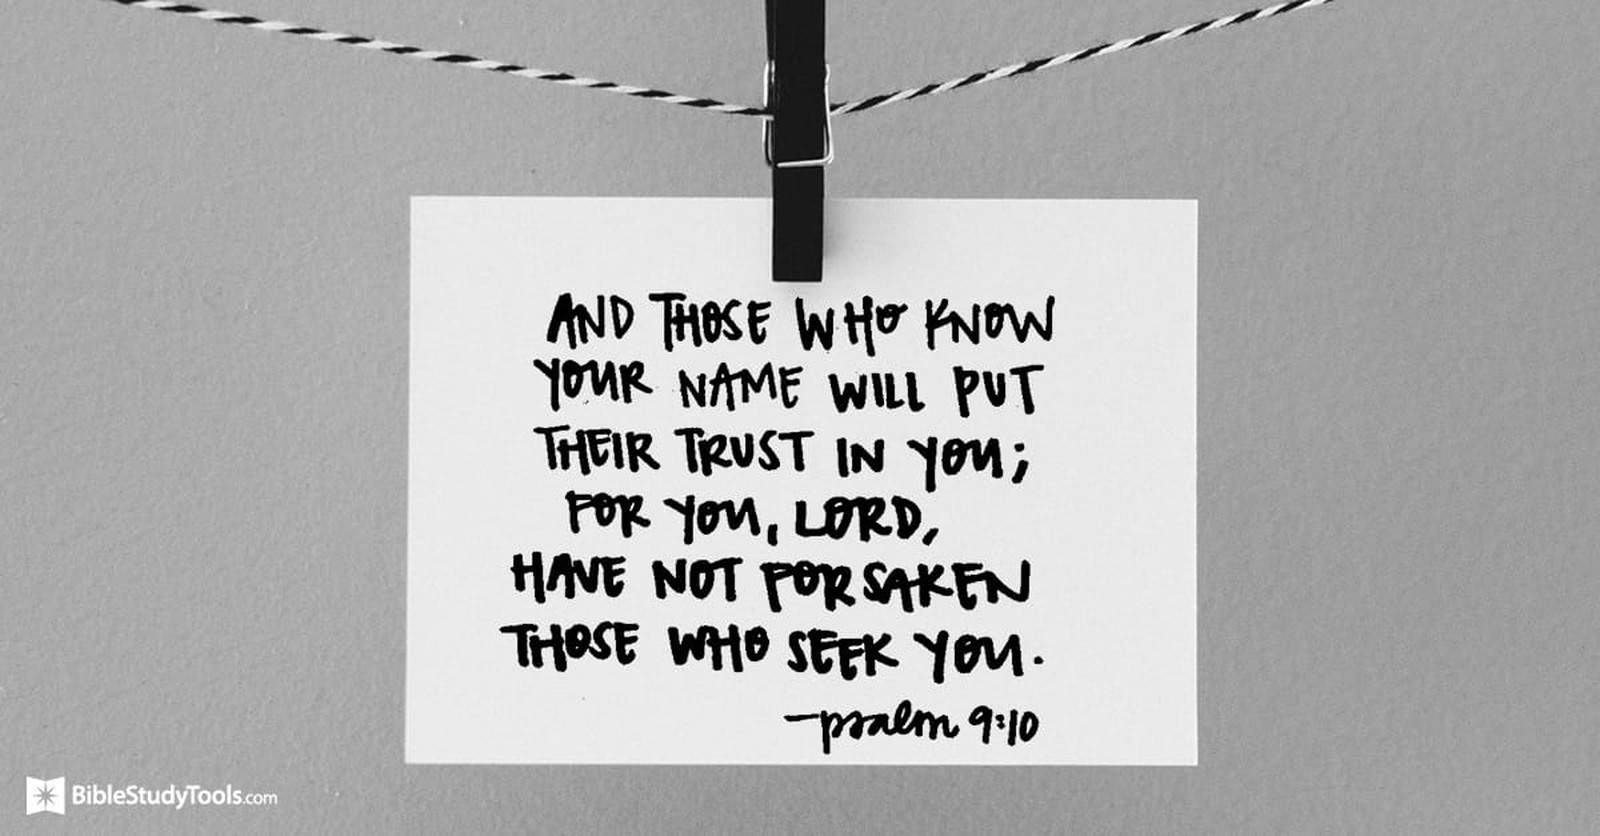 AND THOSE WHO KNOW
YOUR NAME WILL PUT
THEIR TRUST IN YOU;
FOR YOU, LORD,
HAVE NOT FORSAKEN
THOSE WHO SEEK YOU.
—psalm 9:10
BibleStudyTools.com